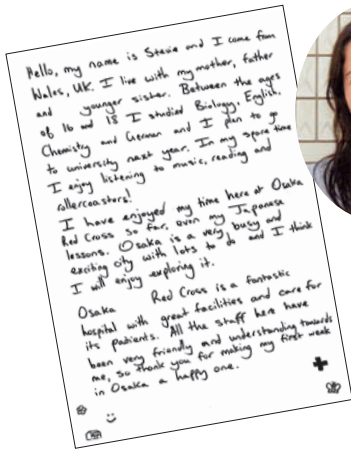 Hello, my name is Stevie and I come from
Wales, UK. I live with my mother, father
and younger sister. Between the ages
of 16 and 18 I studied Biology, English,
Chemistry and German and I plan to go
to university next year. In my spare time
I enjoy listening to music, reading and
rollercoasters!
I have enjoyed my time here at Osaka
Red Cross so far, even my Japanese
lessons. Osaka is a very busy and
exciting city with lots to do and I think
I will enjoy exploring it.
Osaka Red Cross is a fantastic
hospital with great facilities and care for
its patients. All the staff here have
been very friendly and understanding towards
me, so thank you for making my first week
in Osaka a happy one.